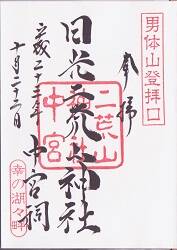 男体山登拝口
奉拝
日光二荒山神社
中宮祠
二荒山
神社
中宮
平成二十三年
十月二十二日
幸の湖々畔